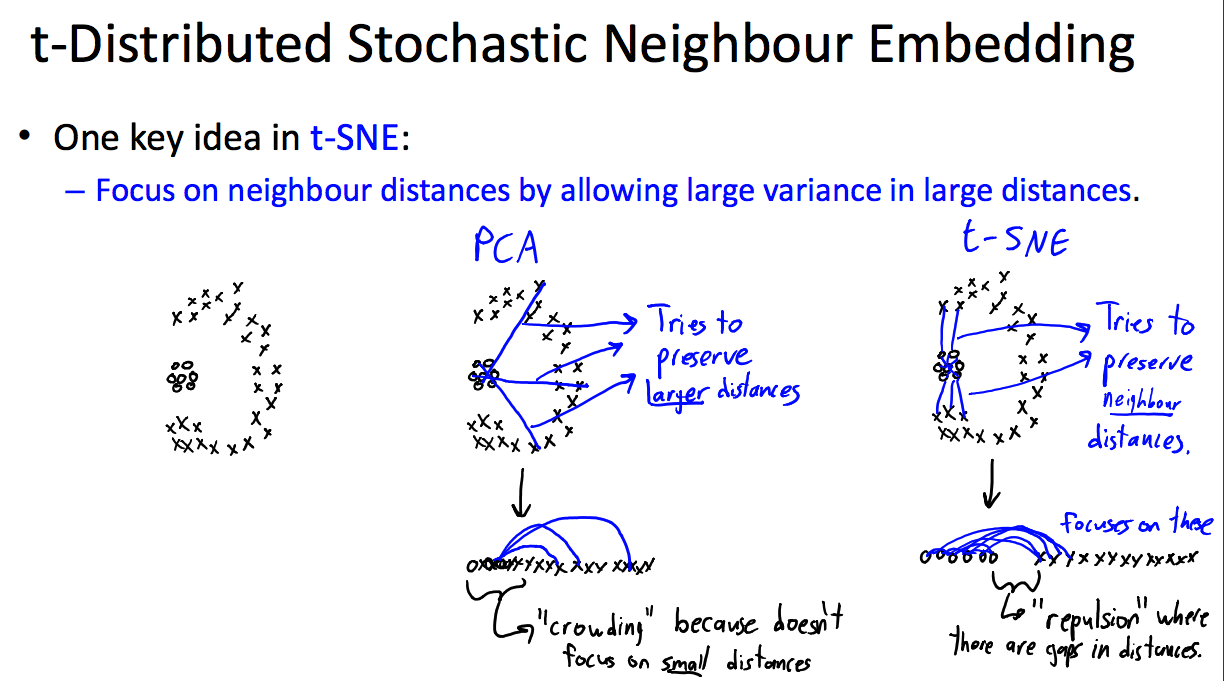 t-Distributed Stochastic Neighbour Embedding
• One key idea in t-SNE:
– Focus on neighbour distances by allowing large variance in large distances.
PCA
Tries to
preserve
larger distances
"crowding" because doesn't
focus on small distances
t-SNE
Tries to
preserve
neighbour
distances.
focuses on these
"repulsion" where
there are gaps in distances.